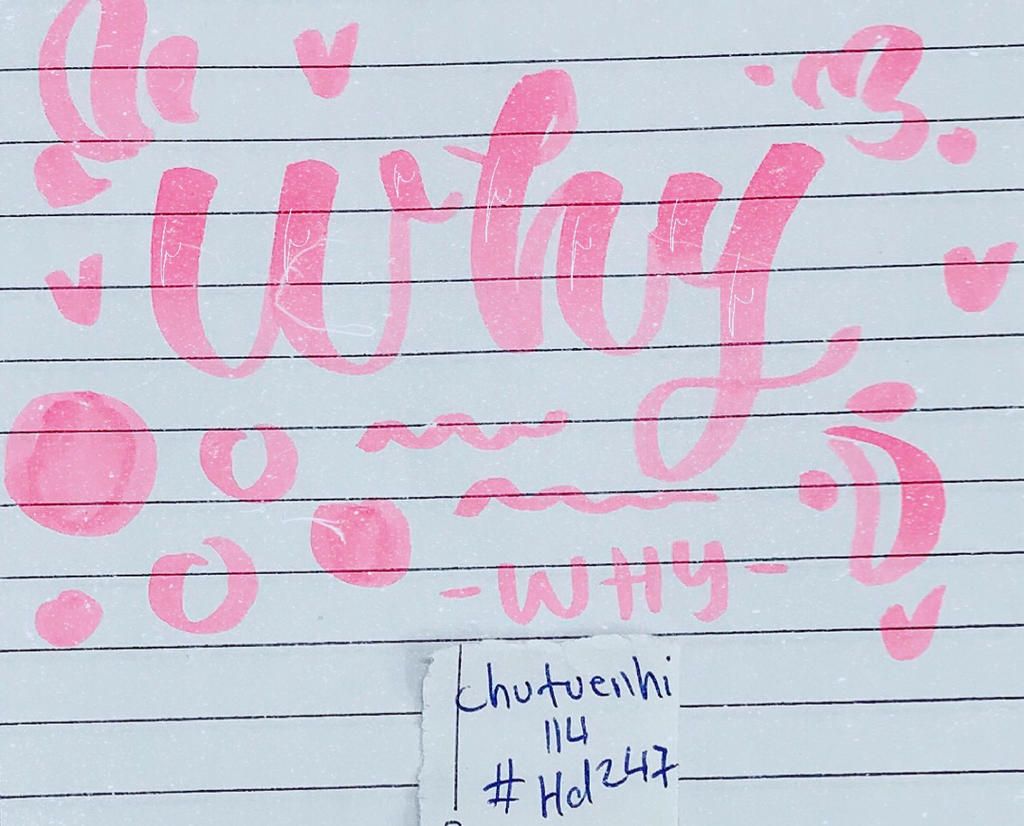 why
- WHY -
chutuenhi
114
#Hd247